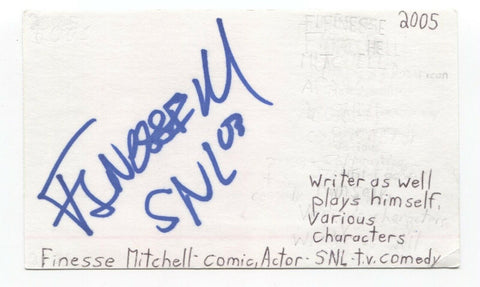 2005
FINESSE M
SNL 03
Writer as well
plays himself,
Various
Characters
Finesse Mitchell - Comic, Actor - SNL - t.v. comedy